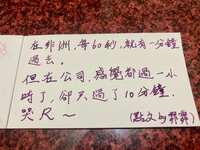 在非洲,每60秒,就有一分鐘
過去。
但在公司,感覺都過一小
時了,卻只過了10分鐘.
哭尺~
(點文by